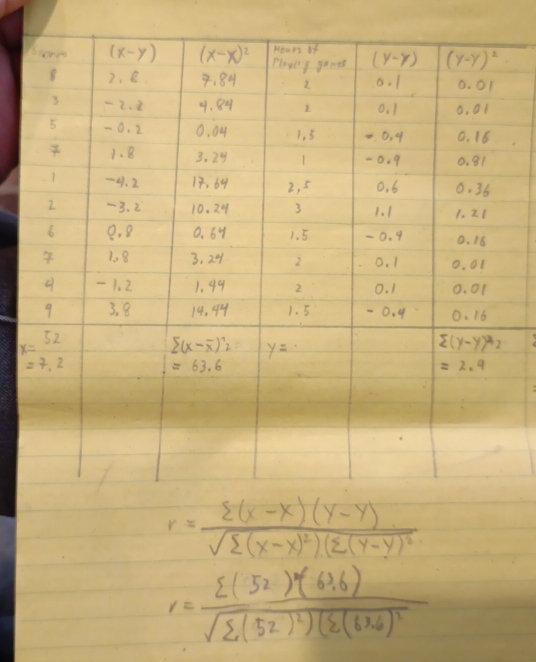 Scores (x-y) (x-x)² Hours of Playing games (y-y) (y-y)²
8 2.8 7.84 2 0.1 0.01
3 -2.2 4.84 2 0.1 0.01
5 -0.2 0.04 1.5 -0.4 0.16
7 1.8 3.24 1 -0.9 0.81
1 -4.2 17.64 2,5 0.6 0.36
2 -3.2 10.24 3 1.1 1.21
6 0.8 0.64 1.5 -0.4 0.16
7 1.8 3.24 2 0.1 0.01
4 -1.2 1.44 2 0.1 0.01
9 3.8 14.44 1.5 -0.4 0.16
52 Σ(x-x̄)² y= Σ(y-y)²
x=
=7,2 = 63.6 = 2.9
r = Σ(x-x)(y-y)
√Σ(x-x)²)(Σ(y-y)²
r = Σ(52)(63.6)
√Σ(52)²)(Σ(63.6)²